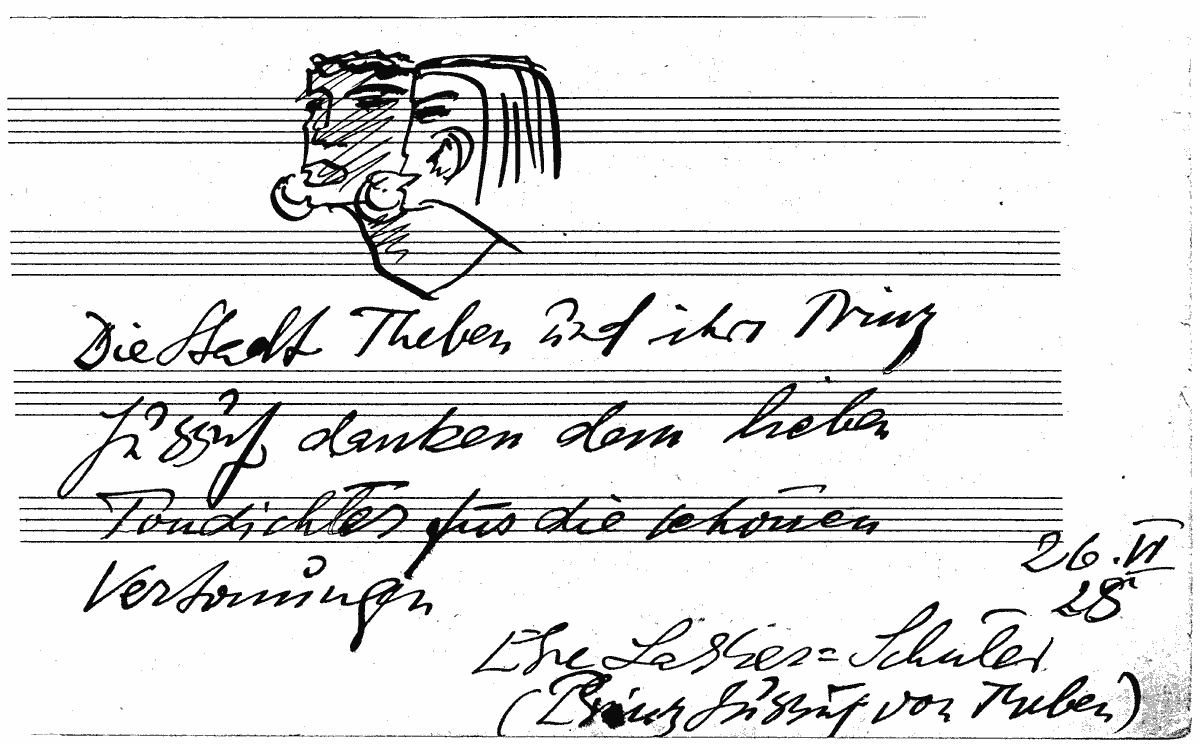 Die Stadt Theben und ihr Prinz
Jussuf danken dem lieben
Tondichter für die schönen
Vertonungen
26. VI
28
Else Lasker=Schüler
(Prinz Jussuf von Theben)